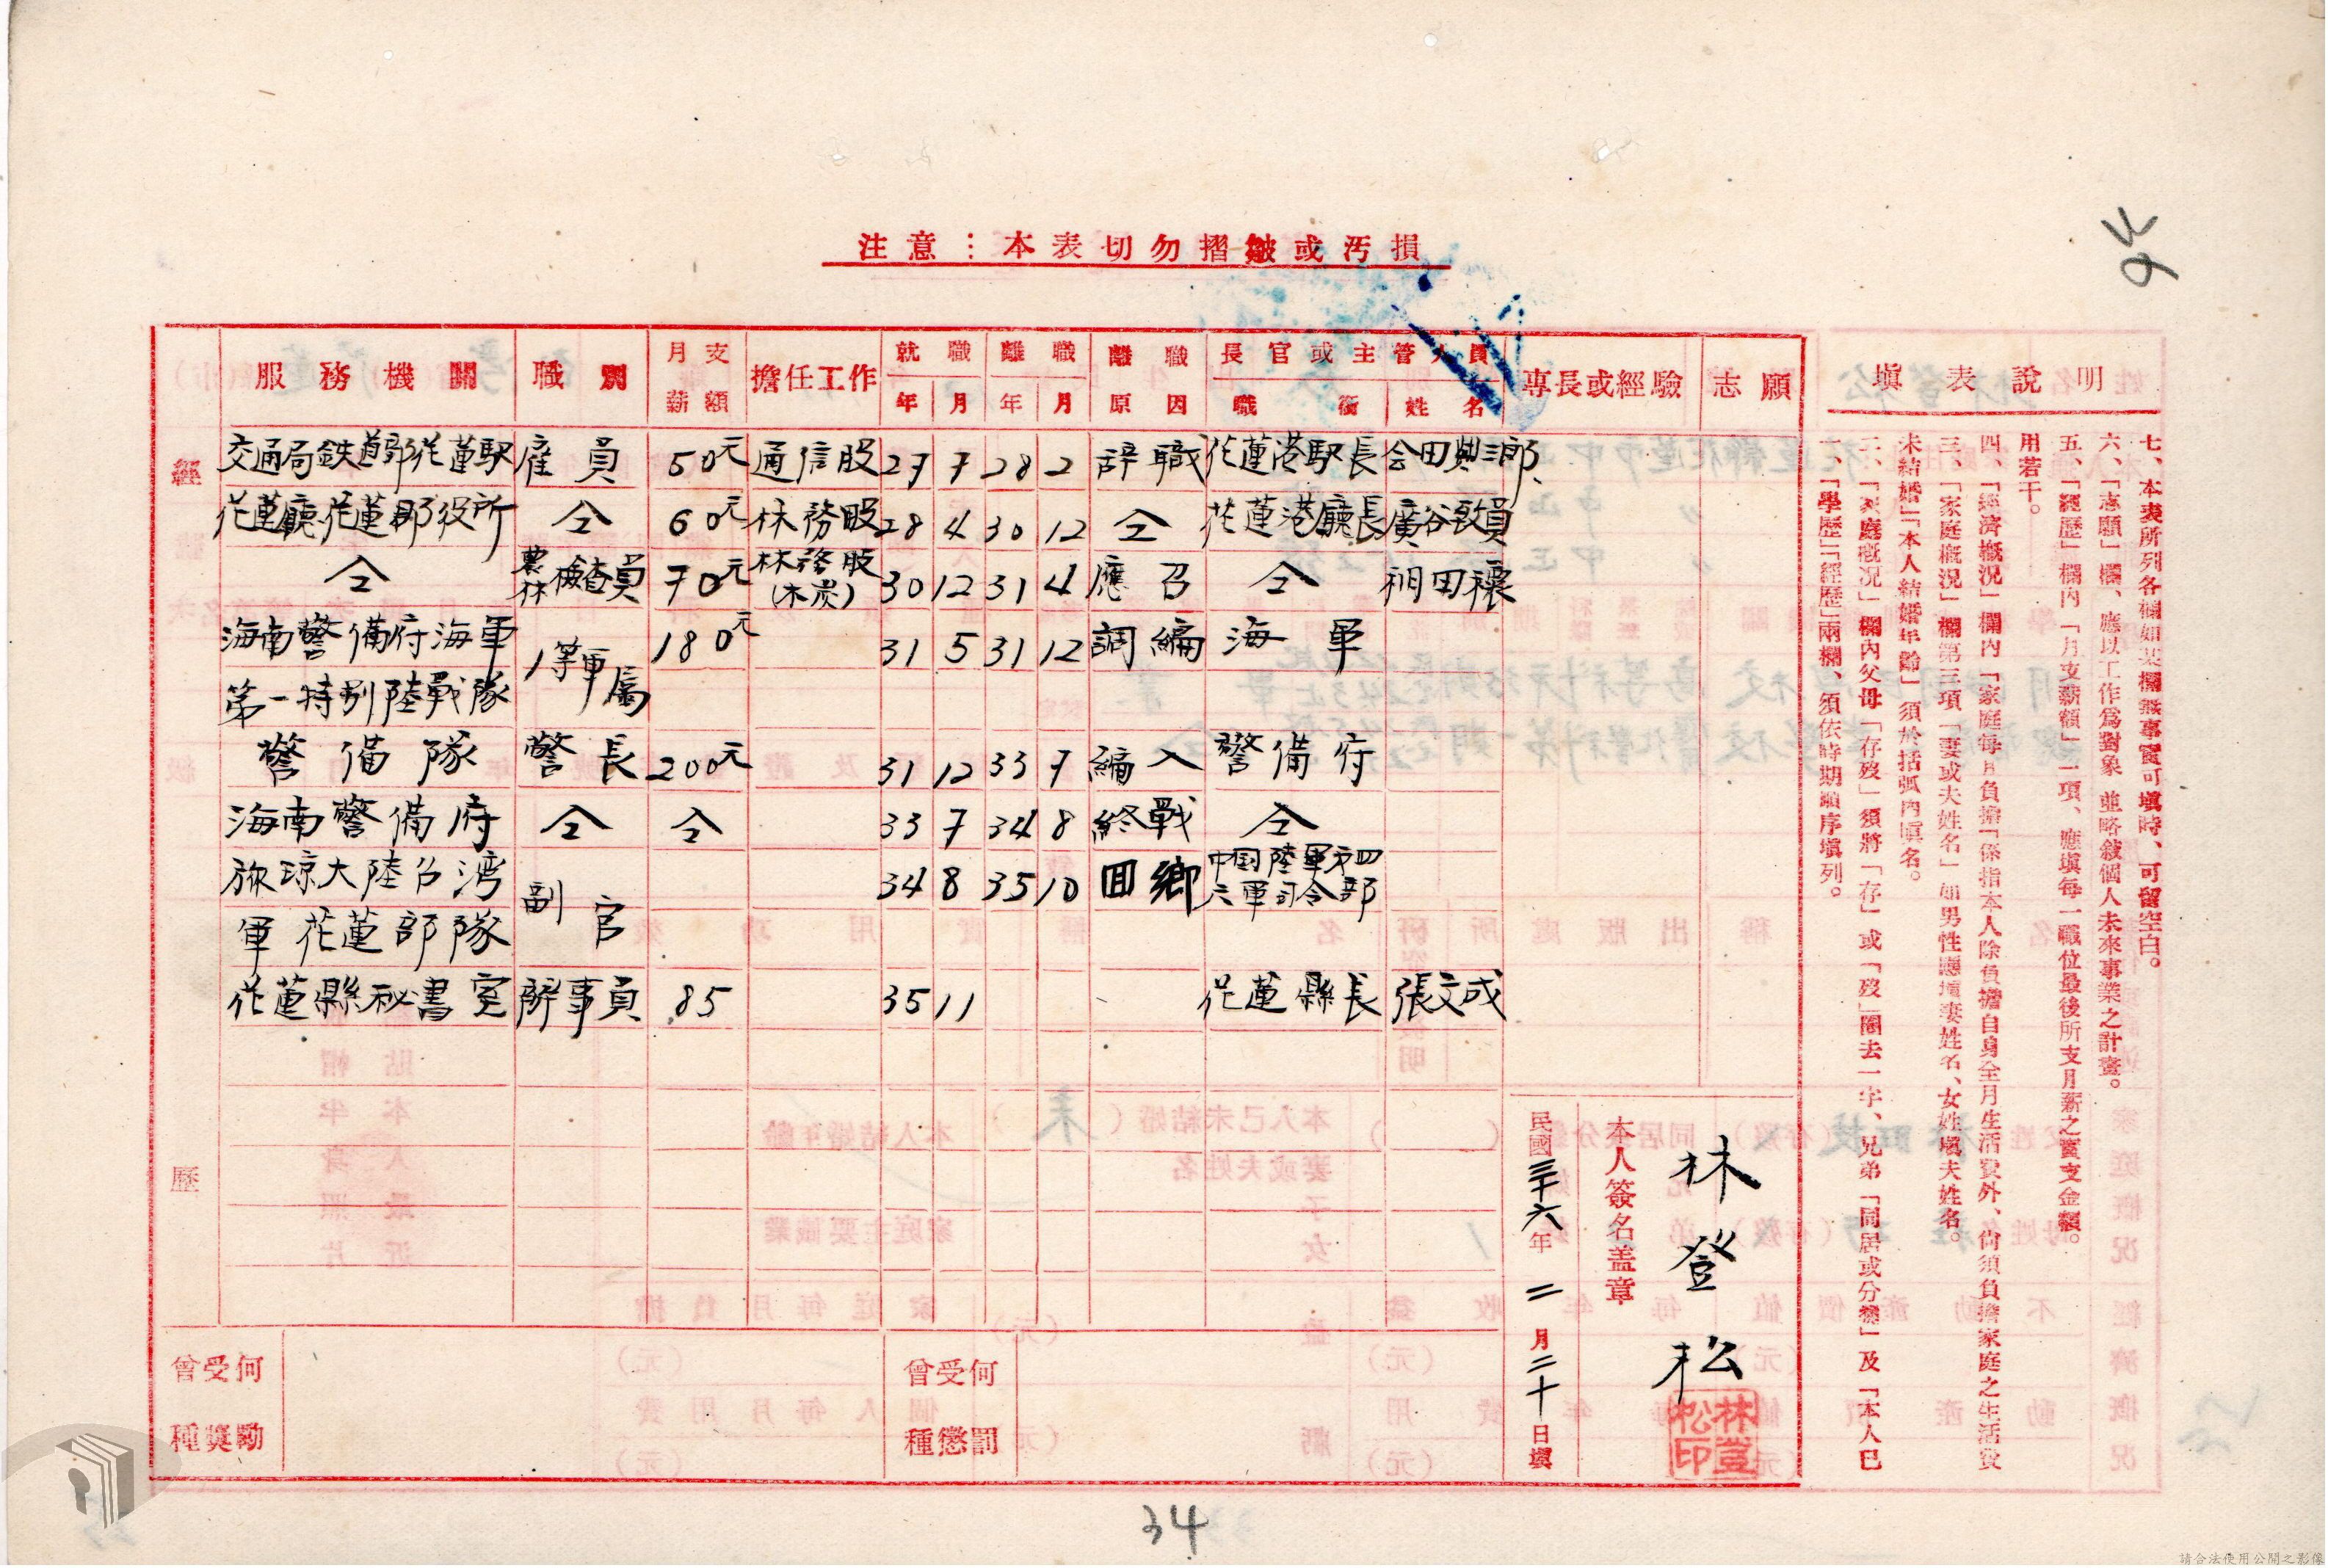 注意：本表切勿摺皺或汚損
服務機關 職別 月支薪額 擔任工作 就職 年 月 離職 年 月 離職原因 長官或主管人員 職銜 姓名 專長或經驗 志願
經歷
交通局鉄道部花蓮駅 雇員 50元 通信股 27 7 28 2 辞職 花蓮港駅長 会田與三郎
花蓮廳花蓮郡役所 仝 60元 林務股 28 4 30 12 仝 花蓮港廳長 廣谷致員
仝 農林檢查員 70元 林務股(木炭) 30 12 31 4 應召 仝
海南警備府海軍 1等軍属 180元 31 5 31 12 調編 海軍
第一特別陸戰隊
警備隊 警長 200元 31 12 33 7 編入 警備府
海南警備府 仝 仝 33 7 34 8 終戰 仝
旅琼大陸台湾 副官 34 8 35 10 回鄉 中国陸軍第四六軍司令部
軍花蓮部隊
花蓮縣秘書室 辦事員 85 35 11 花蓮縣長 張文成
曾受何種獎勵
曾受何種懲罰
本人簽名盖章
林登松
林登松印
民國三十六年二月二十日塡
塡表說明
一、「學歷」「經歷」兩欄、須依時期順序塡列。
二、「家庭概况」欄內父母「存歿」須將「存」或「歿」圈去一字、兄弟「同居或分爨」及「本人已
未結婚」「本人結婚年齡」須於括弧內塡名。
三、「家庭概况」欄第三項「妻或夫姓名」如男性應塡妻姓名、女姓塡夫姓名。
四、「經濟概况」欄內「家庭每月負擔」係指本人除負擔自身全月生活費外、尙須負擔家庭之生活費
用若干。
五、「經歷」欄內「月支薪額」一項、應塡每一職位最後所支月薪之實支金額。
六、「志願」欄、應以工作爲對象並略敍個人未來事業之計畫。
七、本表所列各欄如某欄無事實可塡時、可留空白。
34
請合法使用公開之影像